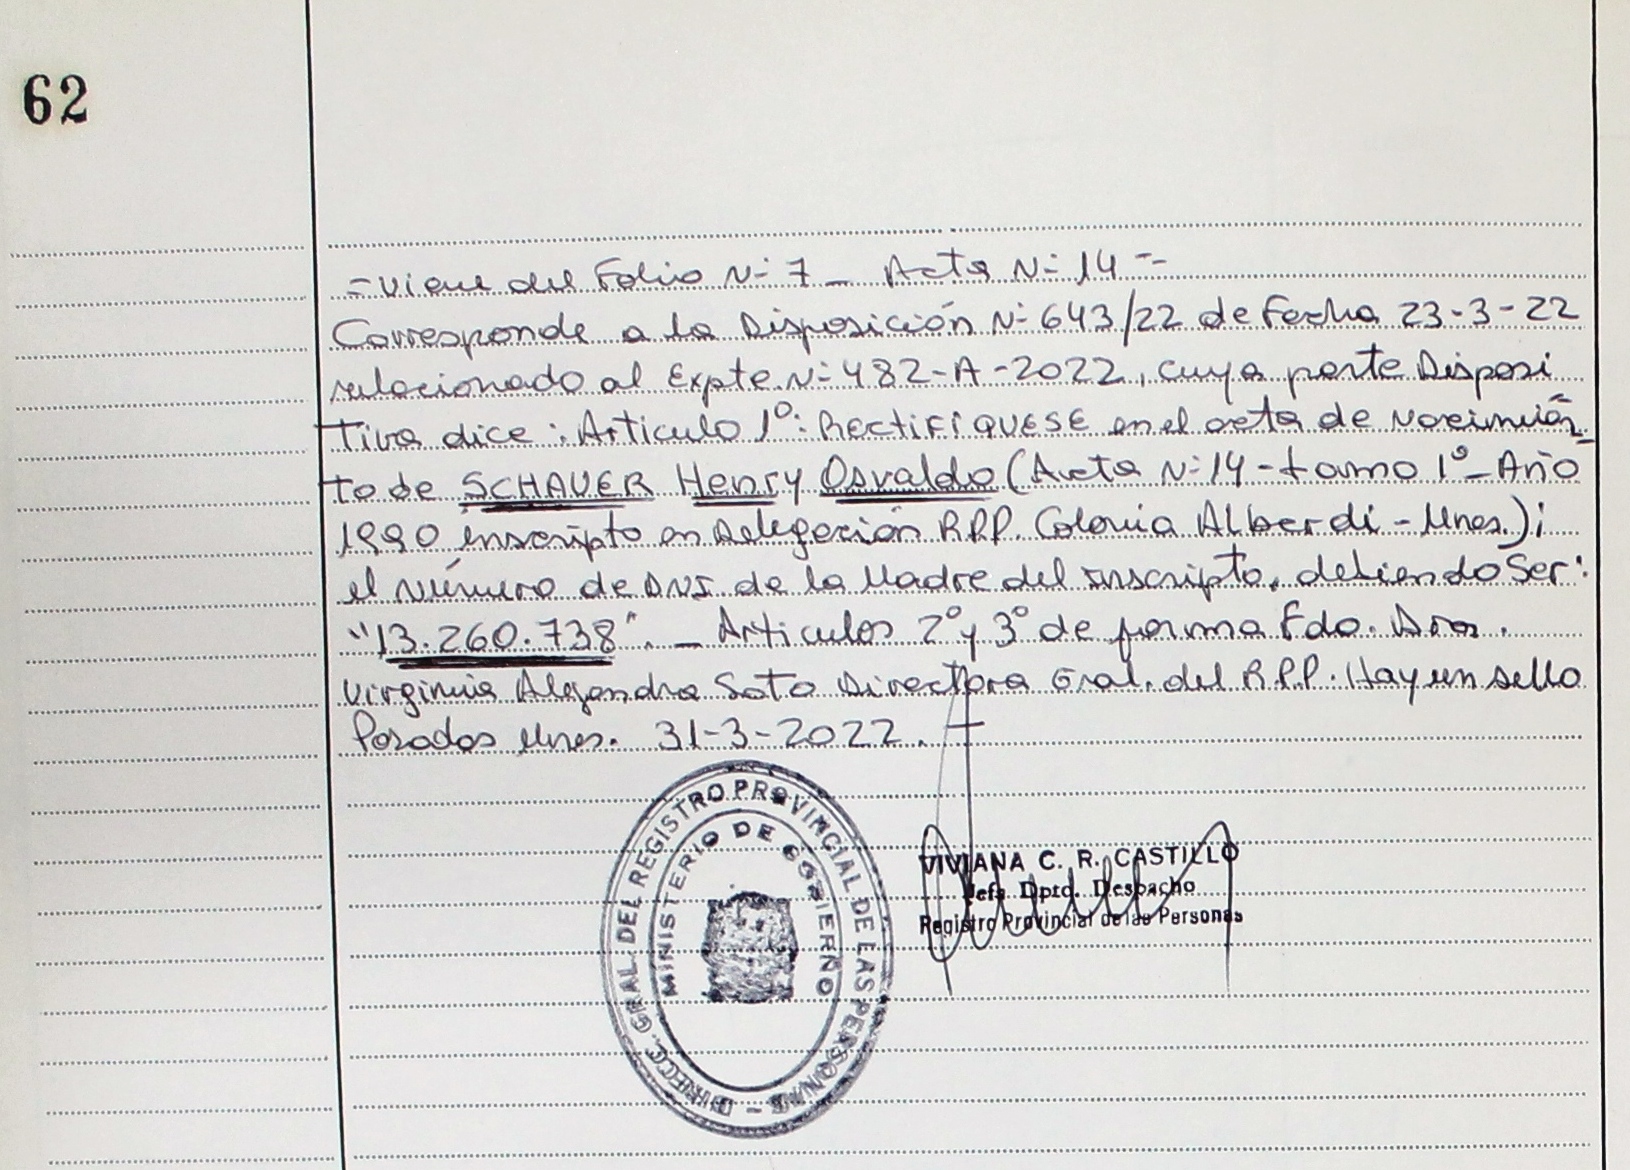 62
- Viene del Folio N- 7 - Acta N- 14 --
Corresponde a la Disposición N- 643/22 de fecha 23-3-22
relacionado al Expte. N- 482-A-2022, cuya parte Disposi
tiva dice: Articulo 1º: RECTIFIQUESE en el acta de Nacimien-
to de SCHAUER Henry Osvaldo (Acta N- 14 - tomo 1º - Año
1990 inscripto en Delegación R.P.P. Colonia Alberdi - Mnes.);
el Número de DNI. de la Madre del inscripto, debiendo Ser:
"13.260.738". - Articulos 2º y 3º de forma Fdo. Dra.
Virginia Alejandra Soto Directora Gral. del R.P.P. Hay un sello
Posadas Mnes. 31-3-2022.
DIRECC. GRAL. DEL REGISTRO PROVINCIAL DE LAS PERSONAS -
MINISTERIO DE GOBIERNO
VIVIANA C. R. CASTILLO
Jefa Dpto. Despacho
Registro Provincial de las Personas